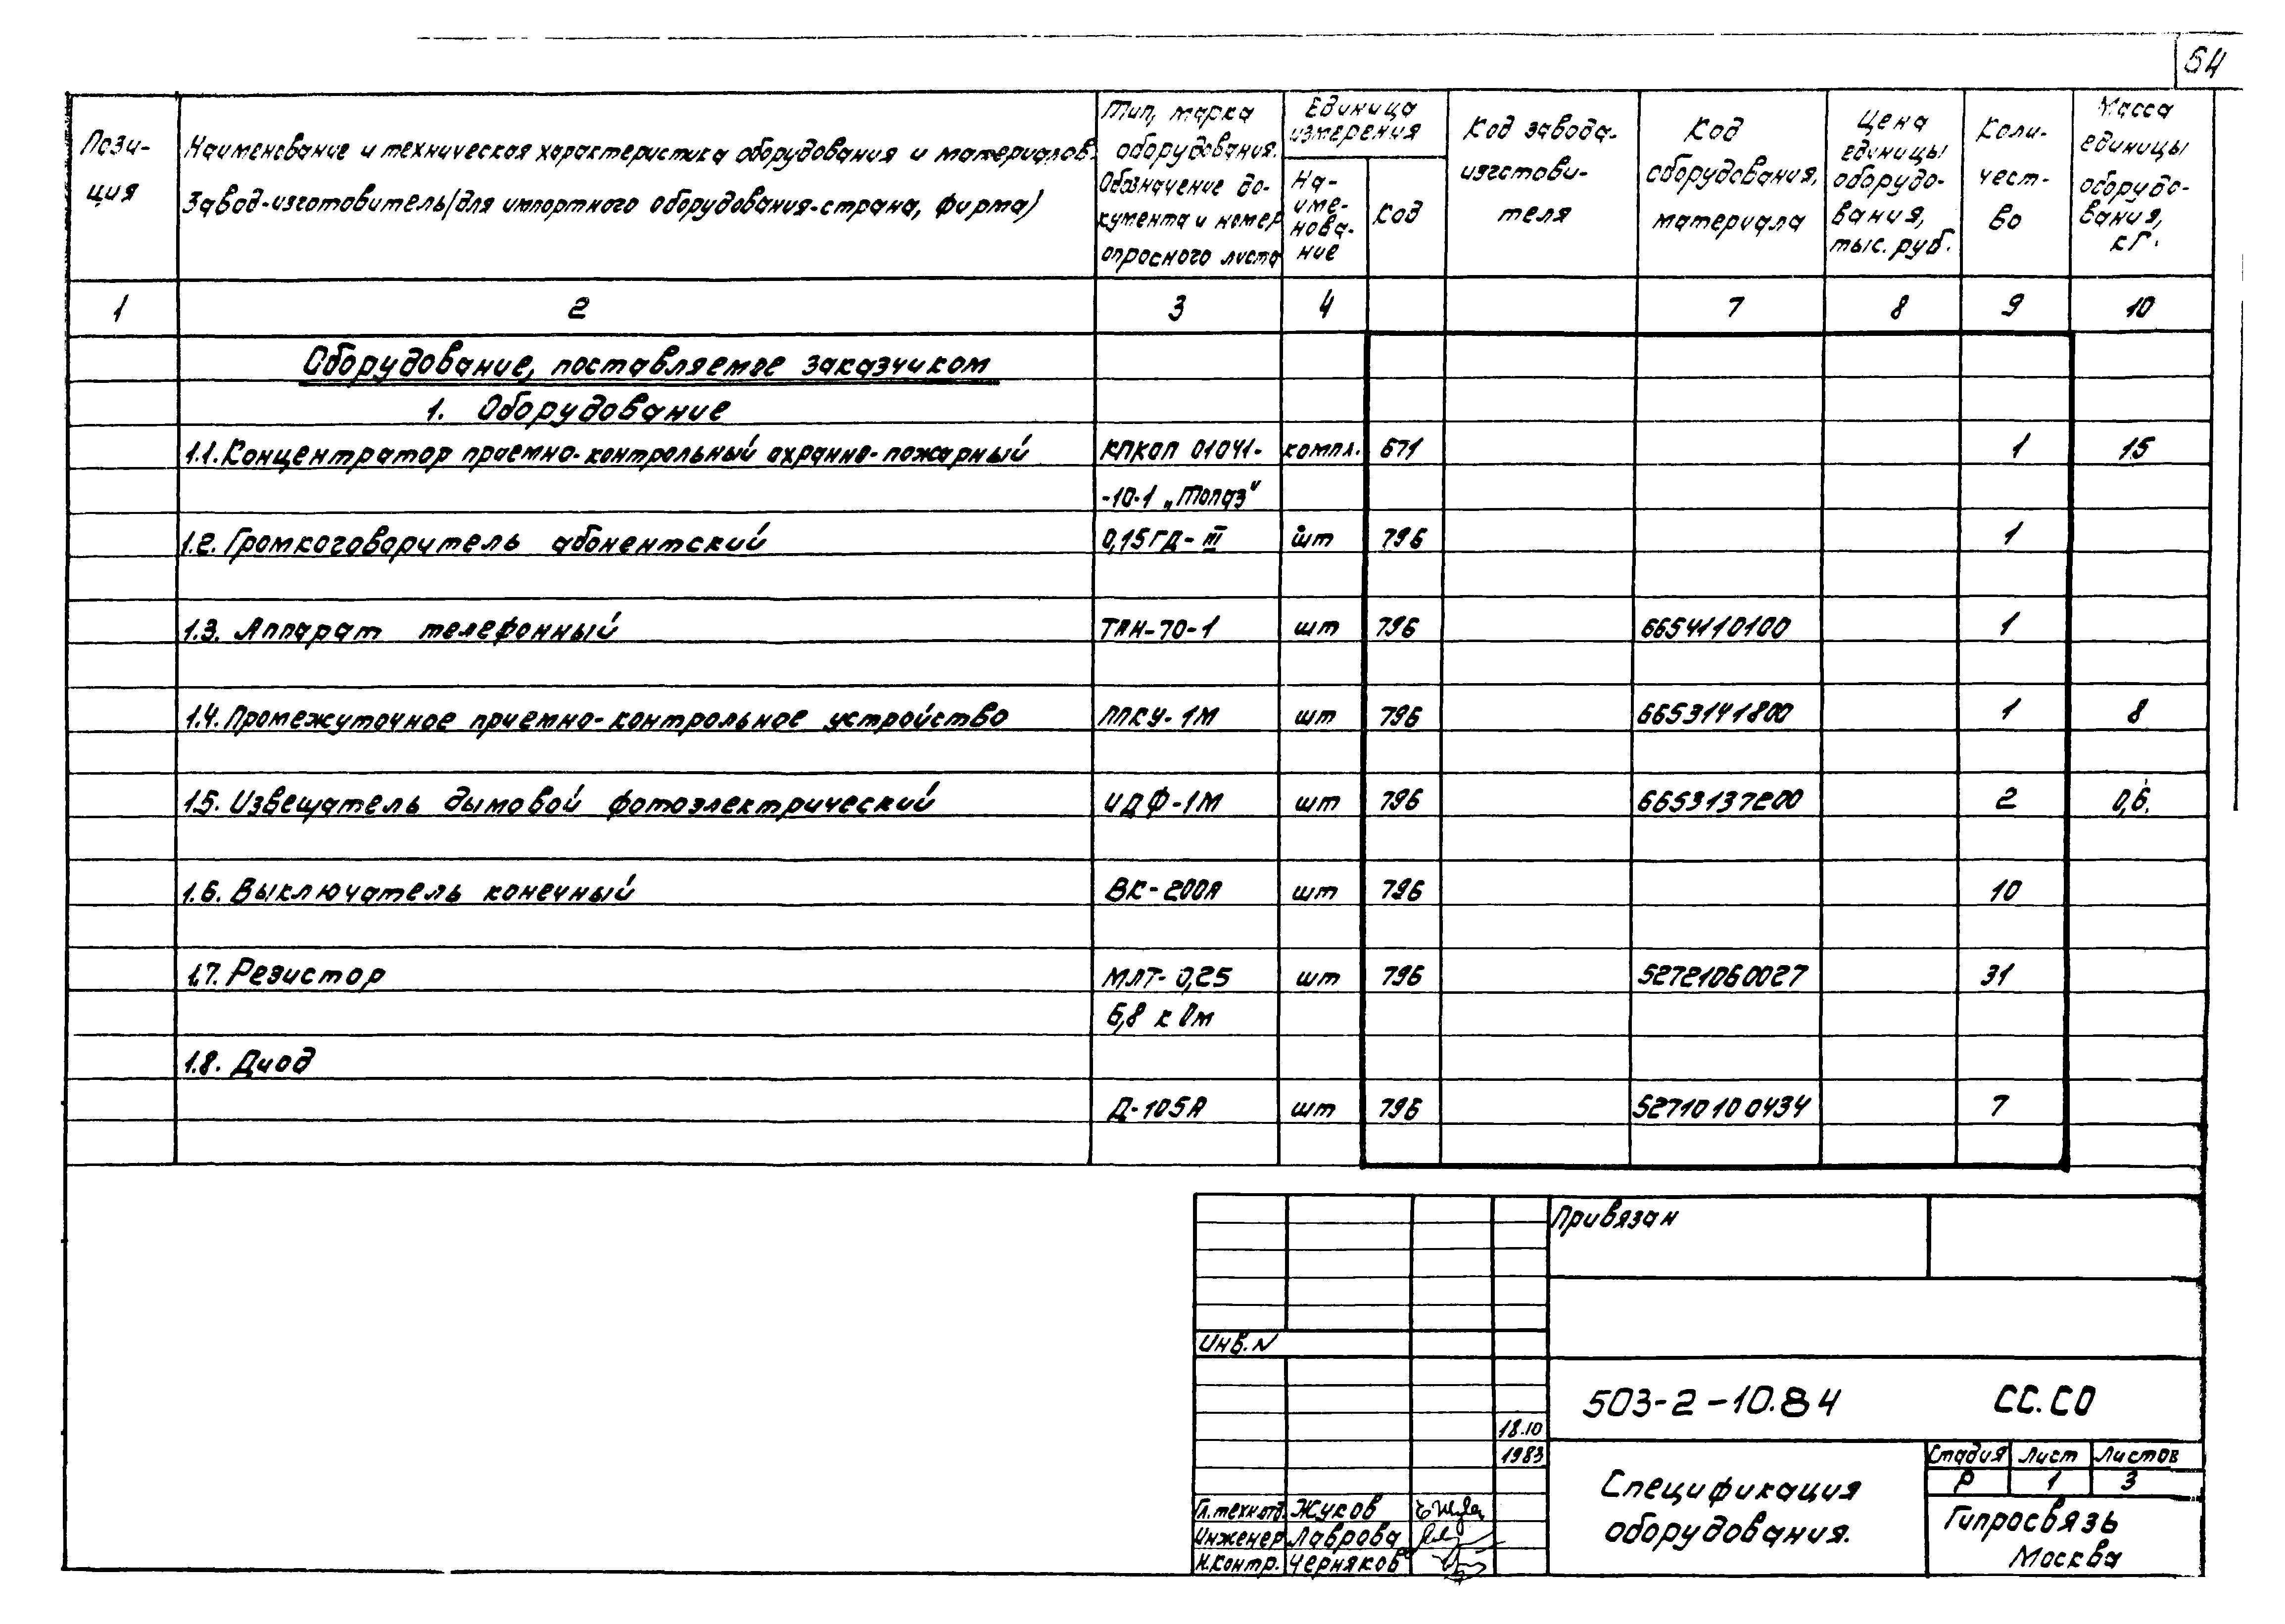 54
Пози-
ция
Наименование и техническая характеристика оборудования и материалов.
Завод-изготовитель (для импортного оборудования-страна, фирма)
Тип, марка
оборудования.
Обозначение до-
кумента и номер
опросного листа
Единица
измерения
На-
име-
нова-
ние
Код
Код завода-
изготови-
теля
Код
оборудования,
материала
Цена
единицы
оборудо-
вания,
тыс. руб.
Коли-
чест-
во
Масса
единицы
оборудо-
вания,
кг.
1 2 3 4 7 8 9 10
Оборудование, поставляемое заказчиком
1. Оборудование
1.1. Концентратор приемно-контрольный охранно-пожарный КПКОП 01041- компл. 671 1 15
-10-1 „Топаз"
1.2. Громкоговоритель абонентский 0,15ГД-III шт 796 1
1.3. Аппарат телефонный ТАН-70-1 шт 796 6654110100 1
1.4. Промежуточное приемно-контрольное устройство ППКУ-1М шт 796 6653141800 1 8
1.5. Извещатель дымовой фотоэлектрический ИДФ-1М шт 796 6653137200 2 0,6.
1.6. Выключатель конечный ВК-200А шт 796 10
1.7. Резистор МЛТ-0,25 шт 796 52721060027 31
6,8 кОм
1.8. Диод
Д-105А шт 796 52710100434 7
Привязан
Инв. N
503-2-10.84 СС.СО
18.10
1983
Спецификация
оборудования.
Стадия Лист Листов
Р 1 3
Гипросвязь
Москва
Гл.техн.отд. Жуков
Инженер Лаврова
Н.контр. Черняков